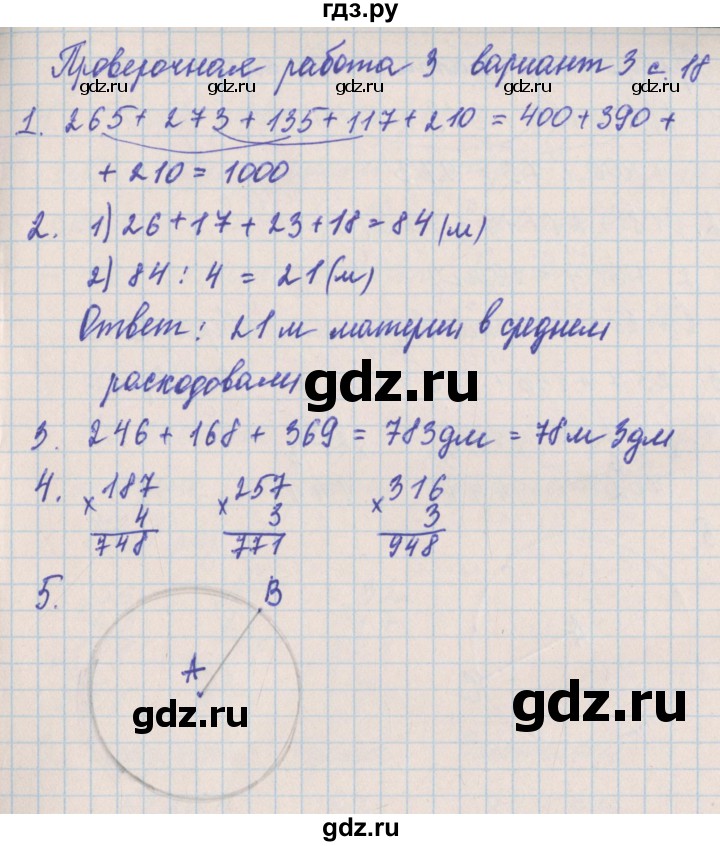 гдз.ру
Проверочная работа 3 вариант 3 с. 18
gdz.ru gdz.ru gdz.ru gdz.ru
1. 265 + 273 + 135 + 117 + 210 = 400 + 390 +
+ 210 = 1000
2. 1) 26 + 17 + 23 + 18 = 84 (м)
2) 84 : 4 = 21 (м)
Ответ: 21 м материи в среднем
расходовали
gdz.ru
3. 246 + 168 + 369 = 783 дм = 78 м 3 дм
4. × 187 × 257 × 316
4 3 3
748 771 948
5. B
A
gdz.ru gdz.ru
gdz.ru